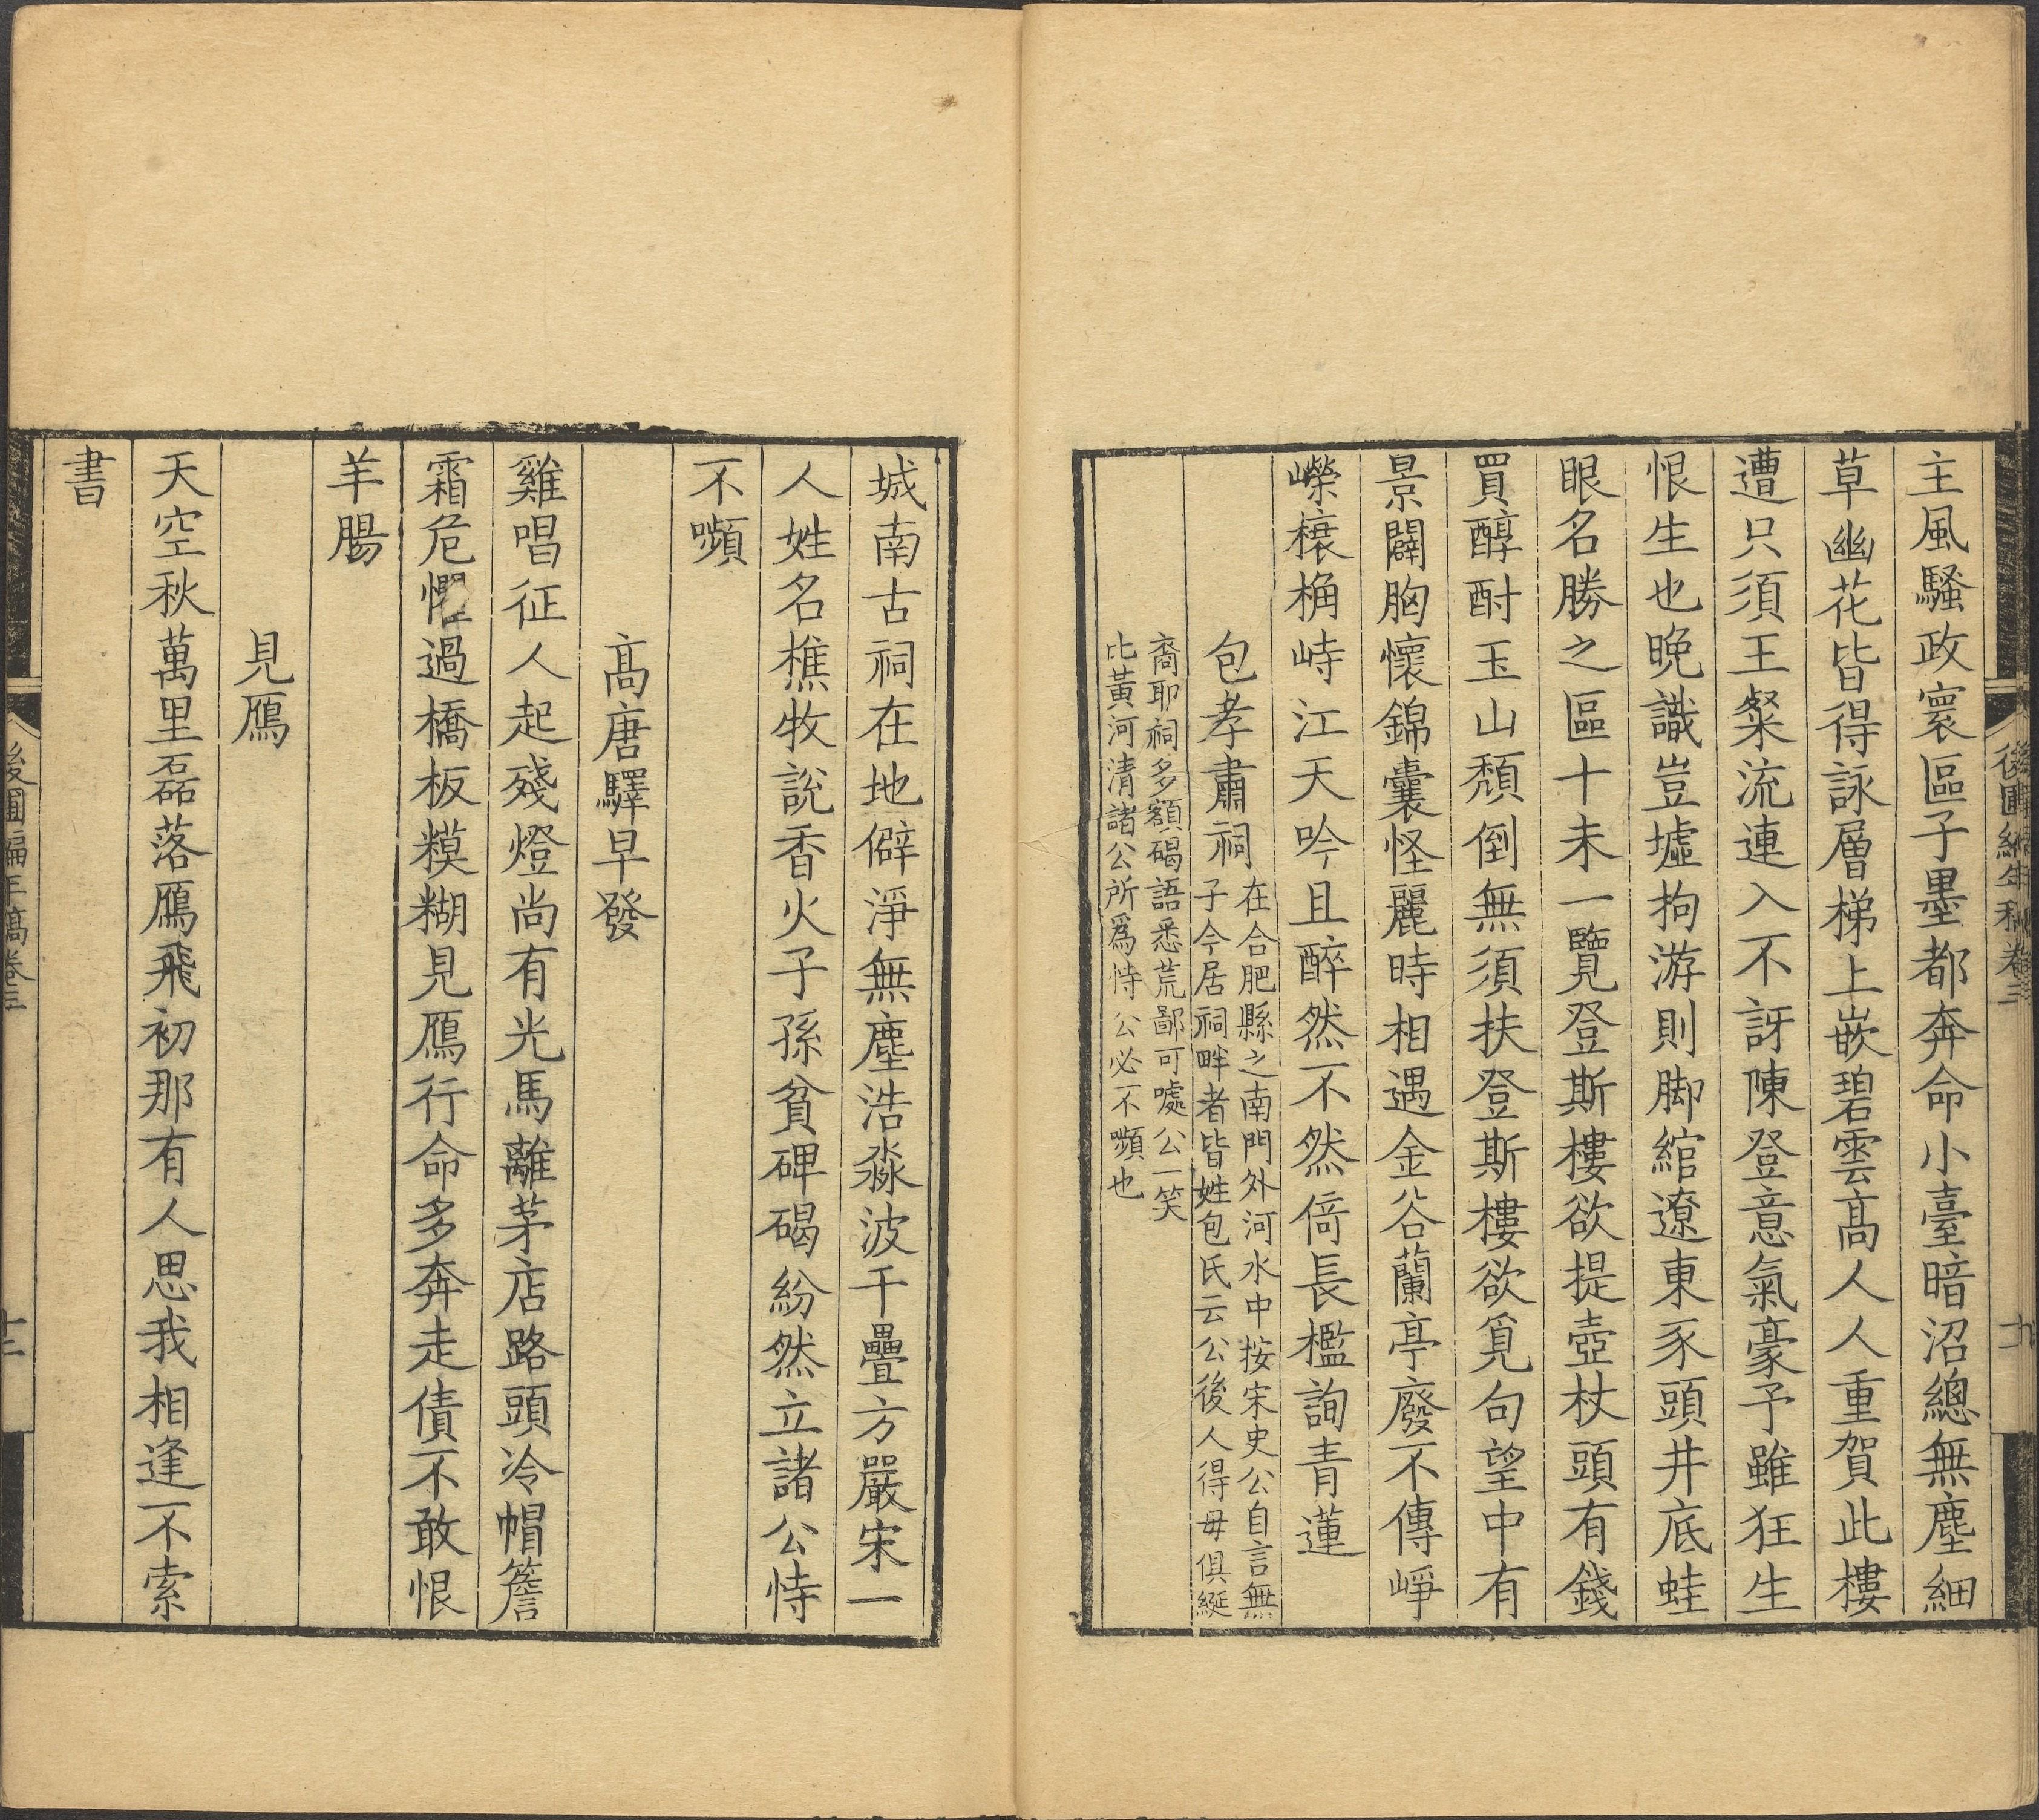 主風騷政寰區子墨都奔命小臺暗沼總無塵細
草幽花皆得詠層梯上嵌碧雲高人人重賀此樓
遭只須王粲流連入不訝陳登意氣豪予雖狂生
恨生也晚識豈墟拘游則脚綰遼東豕頭井底蛙
眼名勝之區十未一覽登斯樓欲提壺杖頭有錢
買醇酎玉山頹倒無須扶登斯樓欲覓句望中有
景闢胸懷錦囊怪麗時相遇金谷蘭亭廢不傳崢
嶸榱桷峙江天吟且醉然不然倚長檻詢青蓮
包孝肅祠在合肥縣之南門外河水中按宋史公自言無
子今居祠畔者皆姓包氏云公後人得毋俱綖
裔耶祠多額碣語悉荒鄙可噓公一笑
比黃河清諸公所爲恃公必不嚬也
城南古祠在地僻淨無塵浩淼波千疊方嚴宋一
人姓名樵牧說香火子孫貧碑碣紛然立諸公恃
不嚬
高唐驛早發
雞唱征人起殘燈尚有光馬離茅店路頭冷帽簷
霜危慳過橋板糢糊見鴈行命多奔走債不敢恨
羊腸
見鴈
天空秋萬里磊落鴈飛初那有人思我相逢不索
書
後圃編年稿卷三